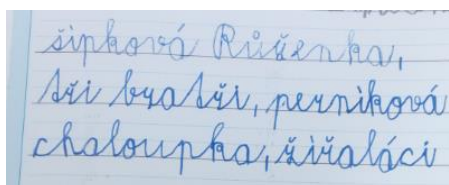 šípková Růženka,
tři bratři, perníková
chaloupka, žižaláci